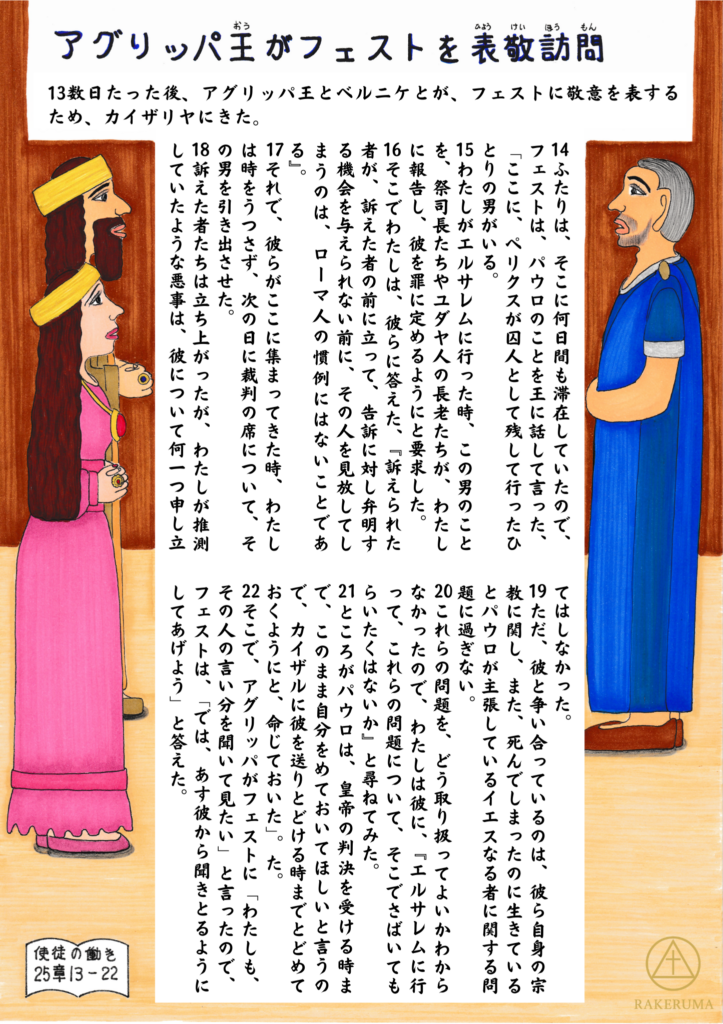 アグリッパ王がフェストを表敬訪問
おう
ひょう けい ほう もん
13数日たった後、アグリッパ王とベルニケとが、フェストに敬意を表する
ため、カイザリヤにきた。
14ふたりは、そこに何日間も滞在していたので、
フェストは、パウロのことを王に話して言った、
「ここに、ペリクスが囚人として残して行ったひ
とりの男がいる。
15わたしがエルサレムに行った時、この男のこと
を、祭司長たちやユダヤ人の長老たちが、わたし
に報告し、彼を罪に定めるようにと要求した。
16そこでわたしは、彼らに答えた、『訴えられた
者が、訴えた者の前に立って、告訴に対し弁明す
る機会を与えられない前に、その人を見放してし
まうのは、ローマ人の慣例にはないことであ
る』。
17それで、彼らがここに集まってきた時、わたし
は時をうつさず、次の日に裁判の席について、そ
の男を引き出させた。
18訴えた者たちは立ち上がったが、わたしが推測
していたような悪事は、彼について何一つ申し立
てはしなかった。
19ただ、彼と争い合っているのは、彼ら自身の宗
教に関し、また、死んでしまったのに生きている
とパウロが主張しているイエスなる者に関する問
題に過ぎない。
20これらの問題を、どう取り扱ってよいかわから
なかったので、わたしは彼に、『エルサレムに行
って、これらの問題について、そこでさばいても
らいたくはないか』と尋ねてみた。
21ところがパウロは、皇帝の判決を受ける時ま
で、このまま自分をとめておいてほしいと言うの
で、カイザルに彼を送りとどける時までとどめて
おくようにと、命じておいた」。た。
22そこで、アグリッパがフェストに「わたしも、
その人の言い分を聞いて見たい」と言ったので、
フェストは、「では、あす彼から聞きとるように
してあげよう」と答えた。
使徒の働き
25章13-22
RAKERUMA